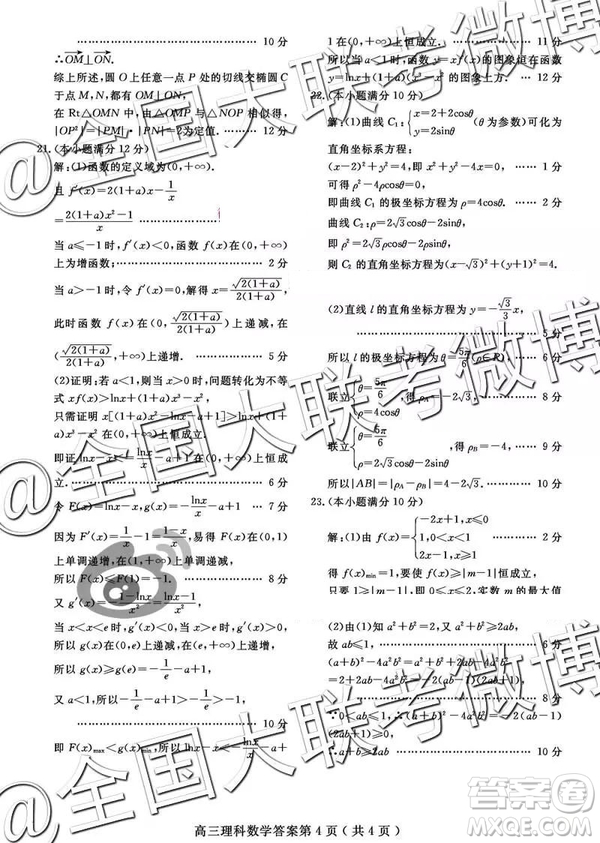 10 分
∴OM⊥ON.
综上所述,圆 O 上任意一点 P 处的切线交椭圆 C
于点 M,N,都有 OM⊥ON.
在 Rt△OMN 中,由△OMP 与△NOP 相似得,
|OP|²=|PM|·|PN|=2为定值. 12 分
21.(本小题满分 12 分)
解:(1)函数的定义域为(0,+∞).
且 f′(x)=2(1+a)x-1/x
=2(1+a)x²-1/x
当 a≤-1 时,f′(x)<0,函数 f(x)在(0,+∞)
上为增函数; 2 分
当 a>-1 时,令 f′(x)=0,解得 x=√2(1+a)/2(1+a),
此时函数 f(x)在(0,√2(1+a)/2(1+a))上递减,在
(√2(1+a)/2(1+a),+∞)上递增. 5 分
(2)证明:若 a<1,则当 x>0 时,问题转化为不等
式 xf(x)>lnx+(1+a)x³-x²,
只需证明 x[(1+a)x²-lnx-a+1]>lnx+(1+
a)x³-x²在(0,+∞)上恒成立.
即证lnx-x<lnx/x-a+1在(0,+∞)上恒成
立. 6 分
令 F(x)=lnx-x, g(x)=lnx/x-a+1 7 分
因为 F′(x)=1/x-1=1-x/x,易得 F(x)在(0,1)
上单调递增,在(1,+∞)上单调递减,
所以 F(x)≤F(1)=-1. 8 分
又 g′(x)=-1-lnx/x²=lnx-1/x²,
当 0<x<e 时,g′(x)<0,当 x>e 时,g′(x)>0,
所以 g(x)在(0,e)上递减,在(e,+∞)上递增.
所以 g(x)≥g(e)=-1/e-a+1.
又 a<1,所以-1/e-a+1>-1/e>-1,
10 分
即 F(x)max<g(x)min,所以 lnx-x<-lnx/x-a+
1 在(0,+∞)上恒成立. 11 分
所以当 a<1 时,函数 y=f(x)的图象恒在函数
y=lnx+(1+a)x³-x²的图象上方. 12 分
22.(本小题满分 10 分)
解:(1)曲线 C₁:{x=2+2cosθ
y=2sinθ (θ 为参数)可化为
直角坐标系方程:
(x-2)²+y²=4,即 x²+y²-4x=0, 1 分
可得 ρ²-4ρcosθ=0,
即曲线 C₁ 的极坐标方程为 ρ=4cosθ. 2 分
曲线 C₂:ρ=2√3cosθ-2sinθ,
即 ρ²=2√3ρcosθ-2ρsinθ,
则 C₂ 的直角坐标方程为(x-√3)²+(y+1)²=4.
(2)直线 l 的直角坐标方程为 y=-√3/3x,
5 分
所以 l 的极坐标方程为 θ=5π/6(ρ∈R). 6 分
联立{θ=5π/6
ρ=4cosθ ,得 ρA=-2√3,
联立{θ=5π/6
ρ=2√3cosθ-2sinθ ,得 ρB=-4, 9 分
所以|AB|=|ρA-ρB|=4-2√3. 10 分
23.(本小题满分 10 分)
解:(1)由 f(x)={-2x+1,x≤0
1,0<x<1
2x-1,x≥1 2 分
得 f(x)min=1,要使 f(x)≥|m-1|恒成立,
只要 1≥|m-1|,即 0≤m≤2,实数 m 的最大值
(2)由(1)知 a²+b²=2,又 a²+b²≥2ab,
故 ab≤1,
(a+b)²-4a²b²=a²+b²+2ab-4a²b²
=2+2ab-4a²b²
8 分
∵0<ab≤1,∴(a+b)²-4a²b²≥0,
∴a+b≥2ab 10 分
高三理科数学答案第 4 页(共 4 页)
@全国大联考微博
@全国大联考微博
@全国大联考微博
答案圈